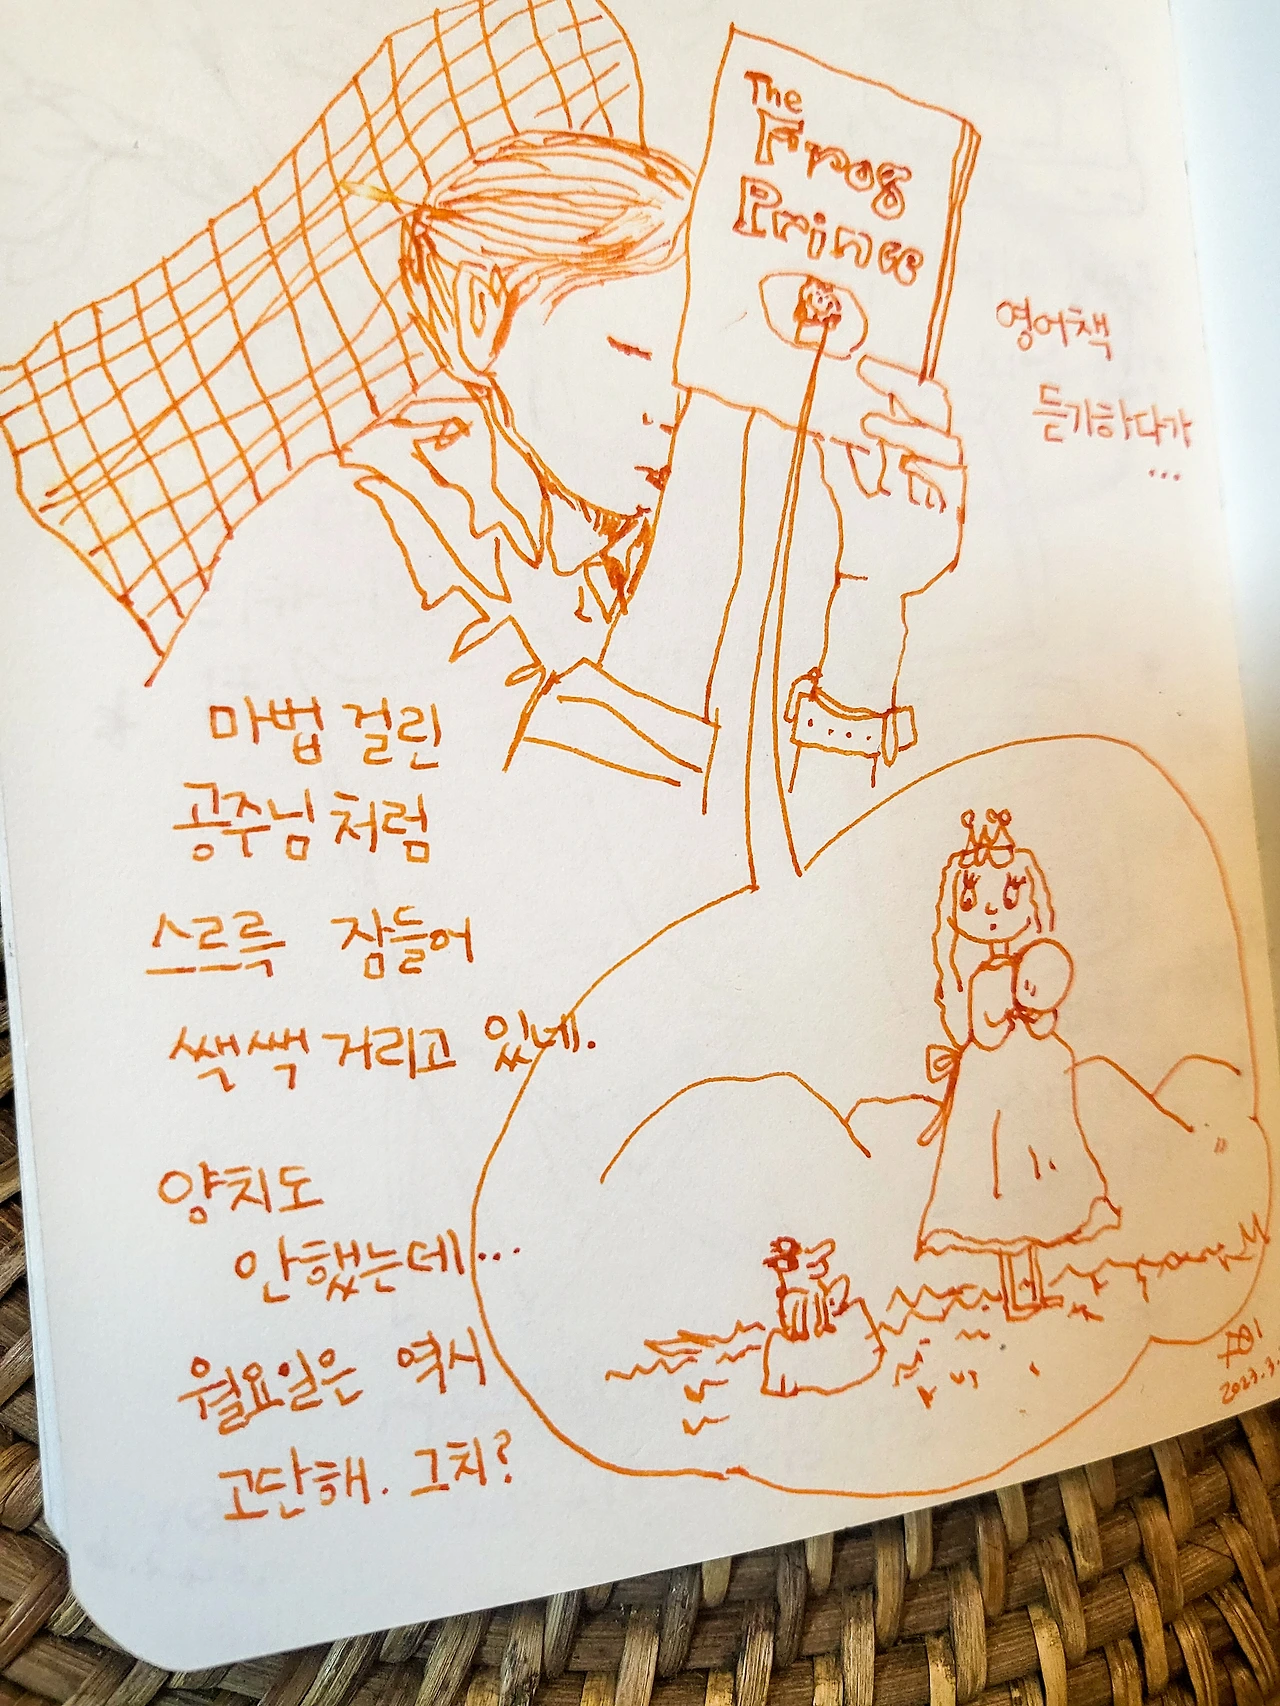 The
Frog
Prince
영어책
듣기하다가
...
마법 걸린
공주님처럼
스르륵 잠들어
쌕쌕거리고 있네.
양치도
안했는데...
월요일은 역시
고단해. 그치?